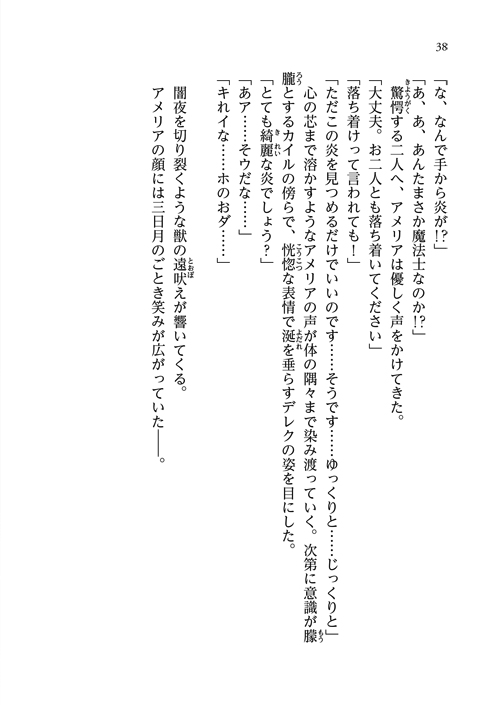 38
「な、なんで手から炎が!?」
「あ、あ、あんたまさか魔法士なのか!?」
驚愕する二人へ、アメリアは優しく声をかけてきた。
「大丈夫。お二人とも落ち着いてください」
「落ち着けって言われても!」
「ただこの炎を見つめるだけでいいのです……そうです……ゆっくりと……じっくりと」
心の芯まで溶かすようなアメリアの声が体の隅々まで染み渡っていく。次第に意識が朦
朧とするカイルの傍らで、恍惚な表情で涎を垂らすデレクの姿を目にした。
「とても綺麗な炎でしょう?」
「あア……そウだな……」
「キれイな……ホのおダ……」
闇夜を切り裂くような獣の遠吠えが響いてくる。
アメリアの顔には三日月のごとき笑みが広がっていた――。